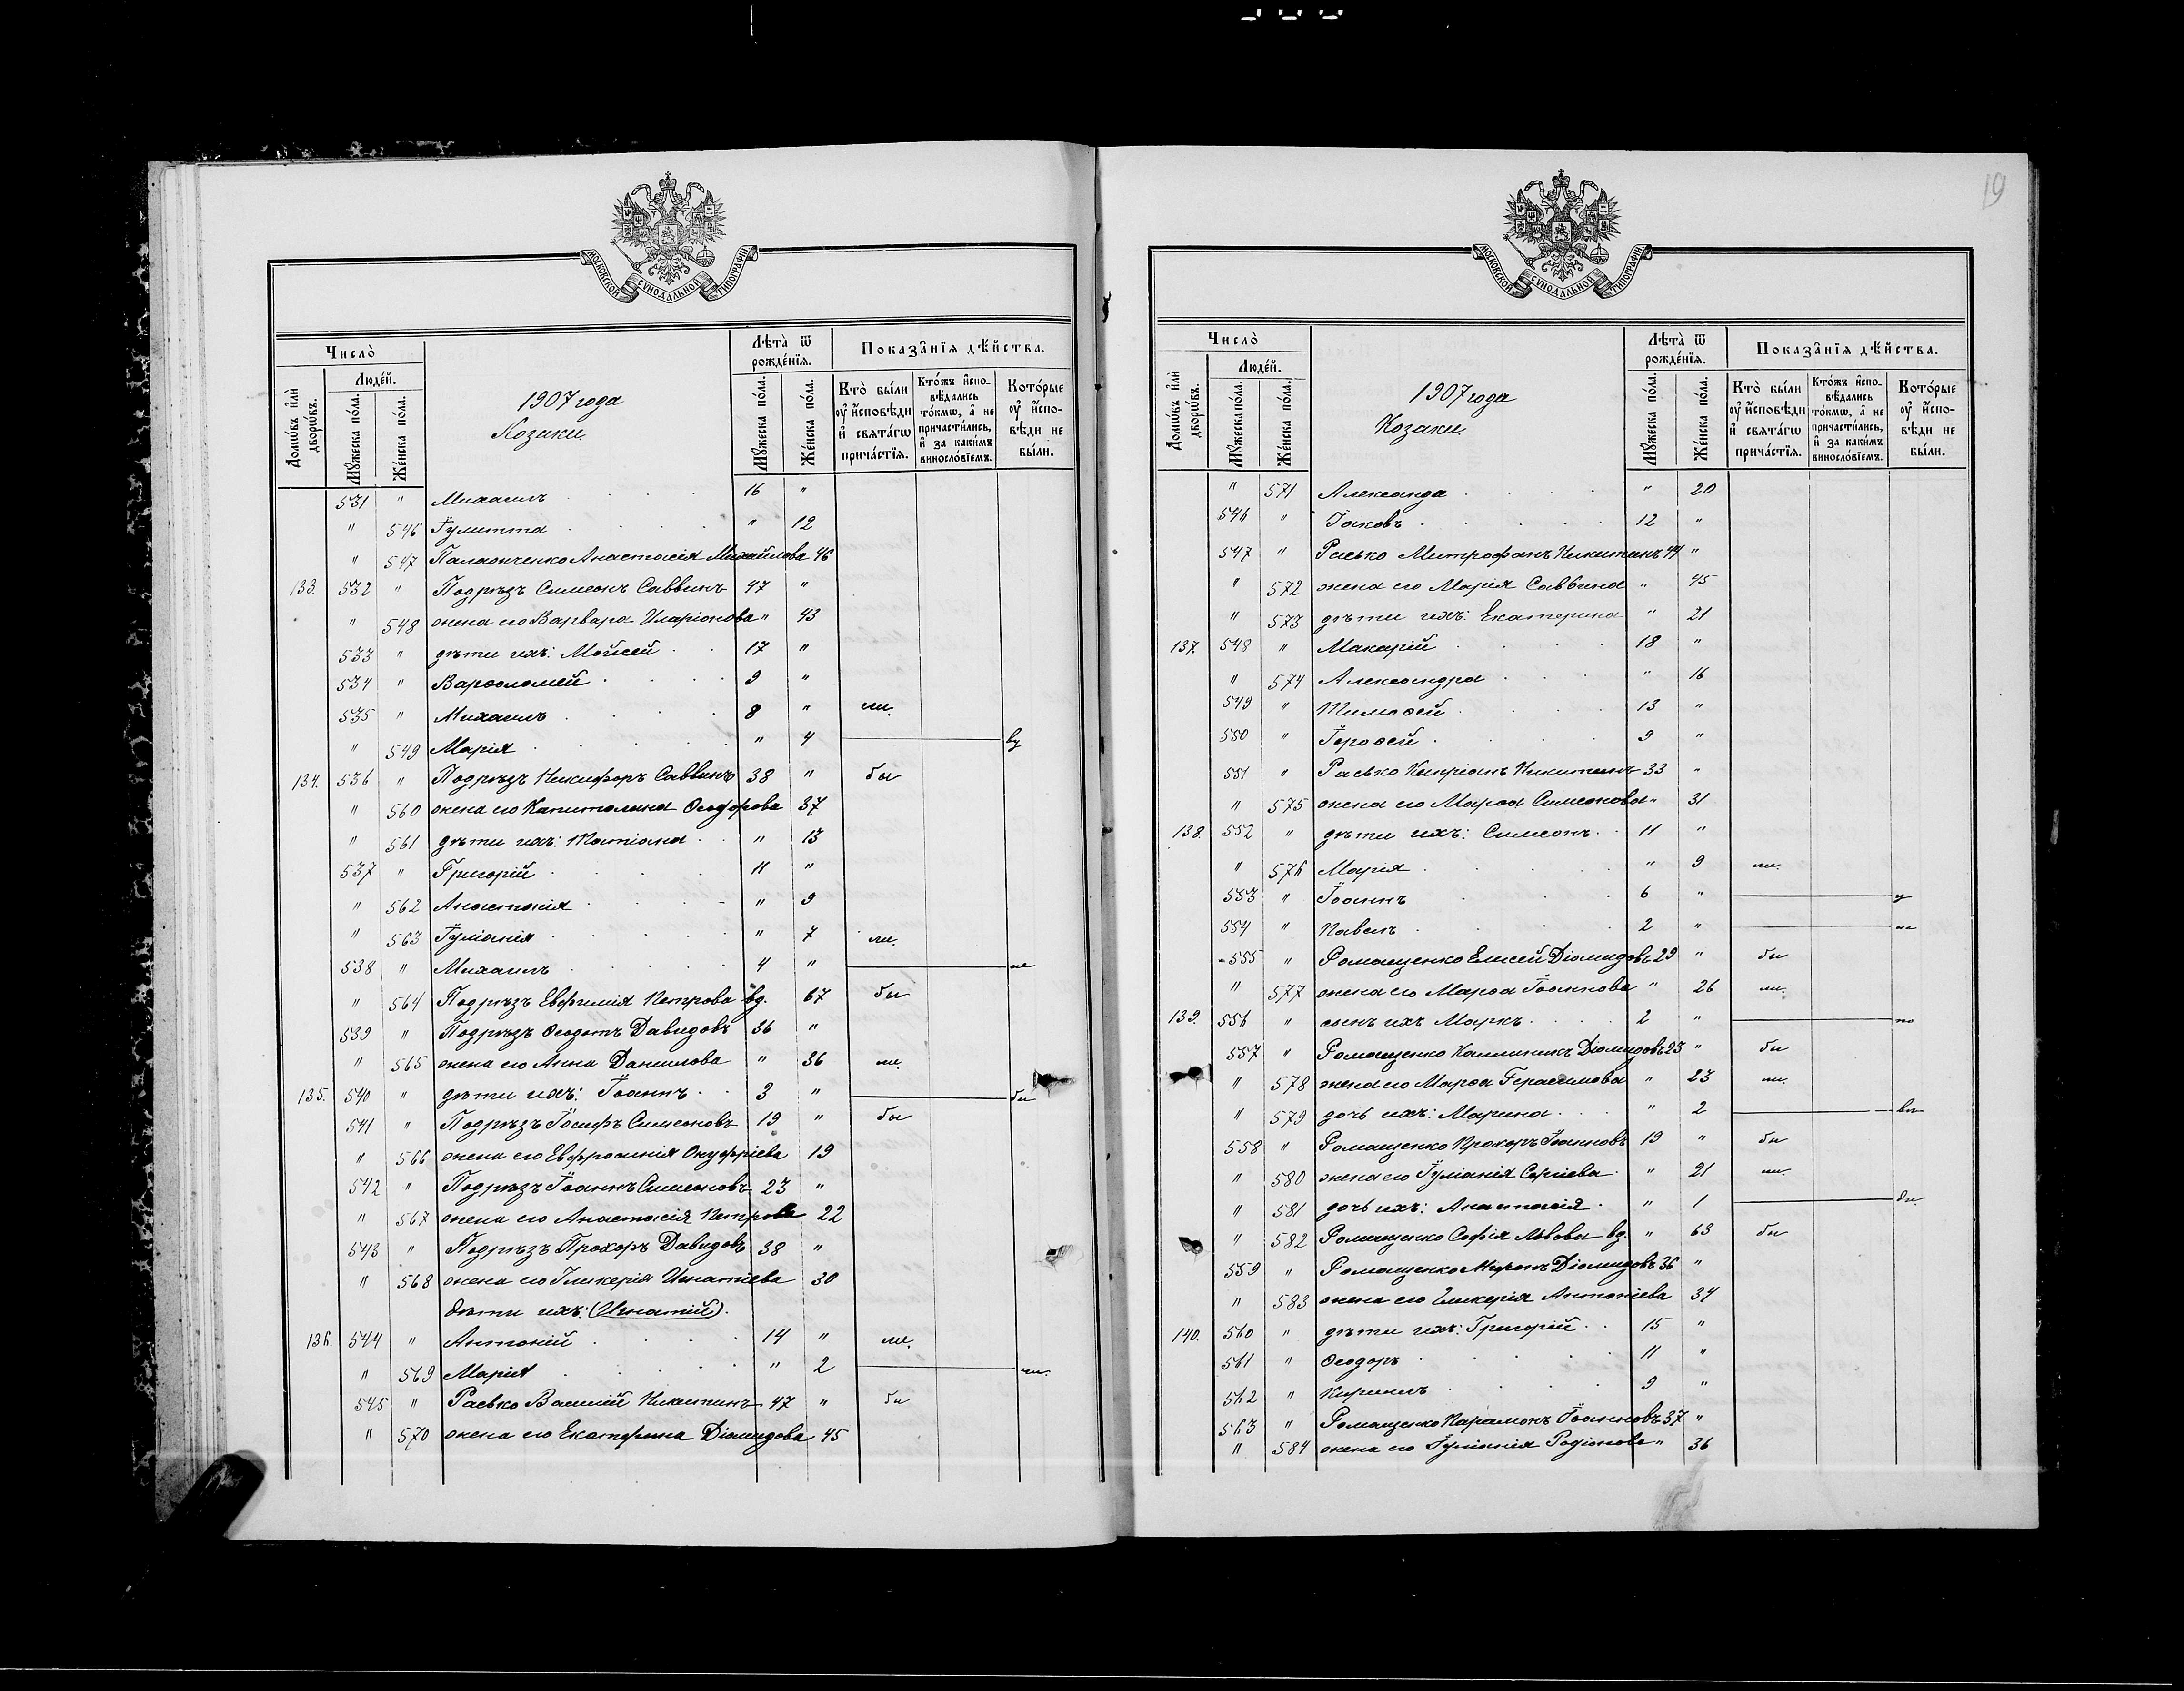 19
МОСКОВСКОЙ СУНОДАЛЬНОЙ ТИПОГРАФІИ
Число̀
Людей.
Домѡвъ и҆лѝ дворѡвъ.
Мꙋжеска по́ла.
Же́нска по́ла.
1907 года
Козаки.
Лѣта̀ ѿ рожде́нїѧ.
Мꙋжеска по́ла.
Же́нска по́ла.
Показа̑нїѧ дѣ́йства.
Кто̀ бы́ли оу҆ и҆сповѣди и҆ свѧта́гѡ прича́стїѧ.
Кто́жъ и҆спо-вѣдались то́кмѡ, а҆ не причасти́лись, и҆ за каки́мъ винослóвїемъ.
Кото́рые оу҆ и҆спо-вѣди не бы́ли.
531 " Михаилъ 16 "
" 546 Іулитта " 12
" 547 Анастасія Михайлова 46
133. 532 " Подрѣзъ Симеонъ Саввинъ 47 "
" 548 жена его Варвара Иларіонова " 43
533 " дѣти ихъ: Мойсей 17 "
534 " Варѳоломей 9 "
535 " Михаилъ 8 " ли.
" 549 Марія " 4
134. 536 " Подрѣзъ Никифоръ Саввинъ 38 " бы
" 560 жена его Капитолина Ѳеодорова 37
" 561 дѣти ихъ: Татіана " 13
537 " Григорій 11 "
" 562 Анастасія " 9
" 563 Іуліанія " 7 ли.
538 " Михаилъ 4 " не
" 564 Подрѣзъ Евфимія Петрова вд. 67 бы
539 " Подрѣзъ Ѳеодотъ Давидовъ 36 "
" 565 жена его Анна Данилова " 36 ли.
135. 540 " дѣти ихъ: Іоаннъ 3 " бы
541 " Подрѣзъ Іосифъ Симеоновъ 19 " бы
" 566 жена его Евфросинія Онуфріева 19
542 " Подрѣзъ Іоаннъ Симеоновъ 23 "
" 567 жена его Анастасія Петрова 22
543 " Подрѣзъ Прохоръ Давидовъ 38 "
" 568 жена его Гликерія Игнатіева 30
дѣти ихъ: (Игнатій).
136. 544 " Антоній 14 " ли.
" 569 Марія " 2 ли.
545 " Расько Василій Никитинъ 47 " бы
" 570 жена его Екатерина Діомидова 45
МОСКОВСКОЙ СУНОДАЛЬНОЙ ТИПОГРАФІИ
Число̀
Людей.
Домѡвъ и҆лѝ дворѡвъ.
Мꙋжеска по́ла.
Же́нска по́ла.
1907 года
Козаки.
Лѣта̀ ѿ рожде́нїѧ.
Мꙋжеска по́ла.
Же́нска по́ла.
Показа̑нїѧ дѣ́йства.
Кто̀ бы́ли оу҆ и҆сповѣди и҆ свѧта́гѡ прича́стїѧ.
Кто́жъ и҆спо-вѣдались то́кмѡ, а҆ не причасти́лись, и҆ за каки́мъ винослóвїемъ.
Кото́рые оу҆ и҆спо-вѣди не бы́ли.
" 571 Александа " 20
546 " Іаковъ 12 "
547 " Расько Митрофанъ Никитинъ 44 "
" 572 жена его Марія Саввина " 45
" 573 дѣти ихъ: Екатерина " 21
137. 548 " Макарій 18 "
" 574 Александра " 16
549 " Тимоѳей 13 "
550 " Іероѳей 9 "
551 " Расько Кипріанъ Никитинъ 33 "
" 575 жена его Марѳа Симеонова " 31
138. 552 " дѣти ихъ: Симеонъ 11 "
" 576 Марія " 9 ли.
553 " Іоаннъ 6 " у
554 " Павелъ 2 "
555 " Ромащенко Елисей Діомидовъ 29 " бы
" 577 жена его Марѳа Іоаннова " 26 ли.
139. 556 " сынъ ихъ Маркъ 2 "
557 " Ромащенко Каллиникъ Діомидовъ 23 " бы
" 578 жена его Марѳа Герасимова " 23 ли.
" 579 дочь ихъ: Марина " 2
558 " Ромащенко Прохоръ Іоанновъ 19 " бы
" 580 жена его Іуліанія Сергіева " 21 ли.
" 581 дочь ихъ: Анастасія " 1
" 582 Ромащенко Софія Львова вд. " 63 бы
559 " Ромащенко Миронъ Діомидовъ 36 "
" 583 жена его Гликерія Антоніева 34
140. 560 " дѣти ихъ: Григорій 15 "
561 " Ѳеодоръ 11 "
562 " Кириллъ 9 "
563 " Ромащенко Парамонъ Іоанновъ 37 "
" 584 жена его Іуліанія Родіонова " 36